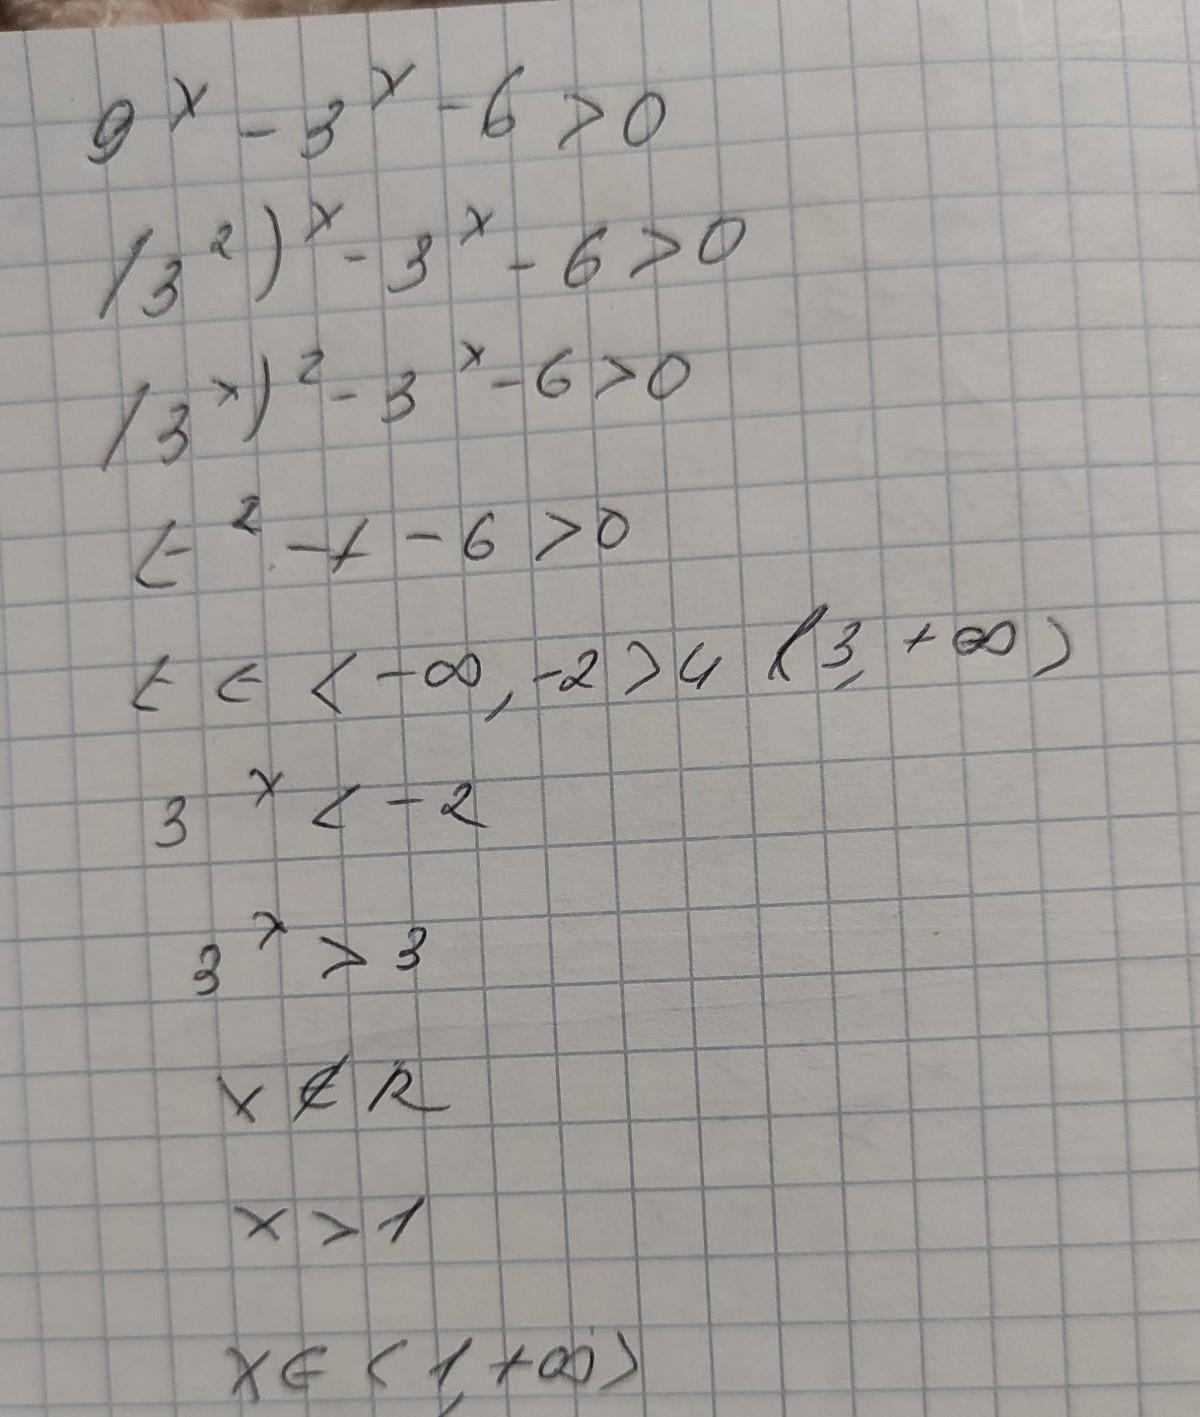 9^x - 3^x - 6 > 0
(3^2)^x - 3^x - 6 > 0
(3^x)^2 - 3^x - 6 > 0
t^2 - t - 6 > 0
t ∈ < -∞, -2 > ∪ (3, +∞ >
3^x < -2
3^x > 3
x ∉ R
x > 1
x ∈ < 1, +∞ >